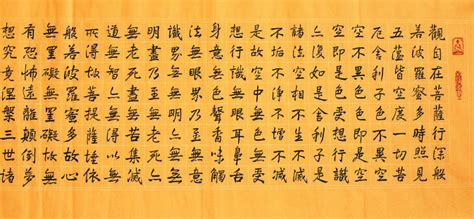 觀自在菩薩行深般
若波羅蜜多時照見
五蘊皆空度一切苦
厄舍利子色不異空
空不異色色即是空
空即是色受想行識
亦復如是舍利子是
諸法空相不生不滅
不垢不淨不增不減
是故空中無色無受
想行識無眼耳鼻舌
身意無色聲香味觸
法無眼界乃至無意
識界無無明亦無無
明盡乃至無老死亦
無老死盡無苦集滅
道無智亦無得以無
所得故菩提薩埵依
般若波羅蜜多故心
無罣礙無罣礙故無
有恐怖遠離顛倒夢
想究竟涅槃三世諸